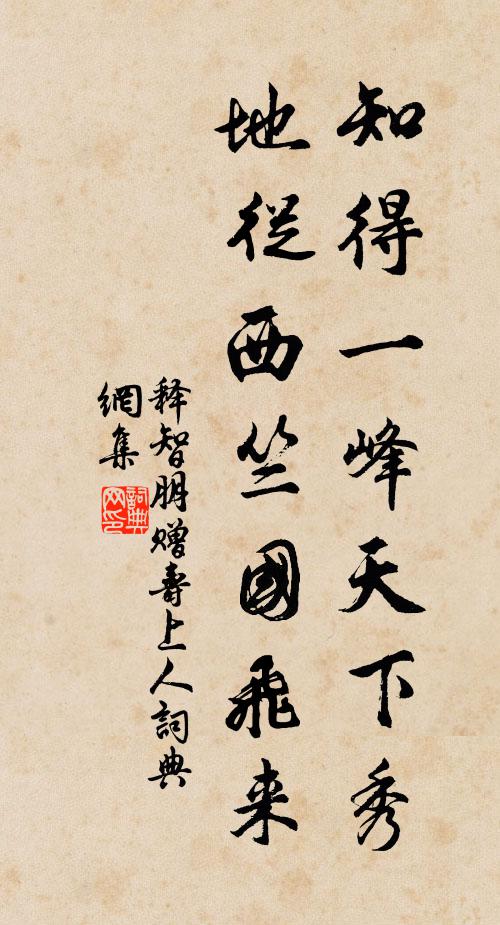 知得一峰天下秀
地從西竺國飛来
释智朋赠壽上人詞典
網集
詞典
网印